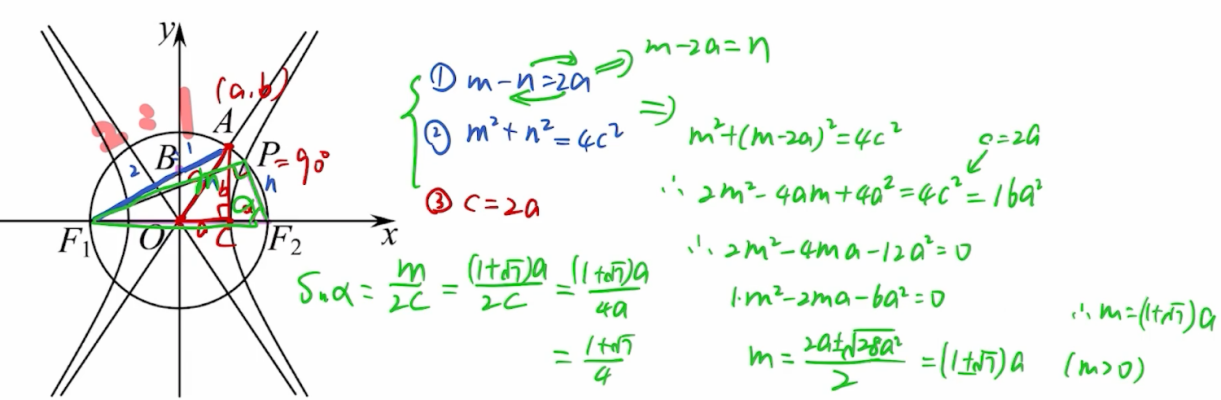 y
(a,b)
A
B
1
2
P=90°
m
n
b
α
a
F₁
O
C
F₂
x
① m-n=2a ⇒ m-2a=n
② m²+n²=4c² ⇒
③ c=2a
m²+(m-2a)²=4c²
c=2a
∴ 2m²-4am+4a²=4c²=16a²
∴ 2m²-4ma-12a²=0
1·m²-2ma-6a²=0
m=\frac{2a±√28a²}{2}=(1±√7)a (m>0)
∴ m=(1+√7)a
Sinα=\frac{m}{2c}=\frac{(1+√7)a}{2c}=\frac{(1+√7)a}{4a}
=\frac{1+√7}{4}